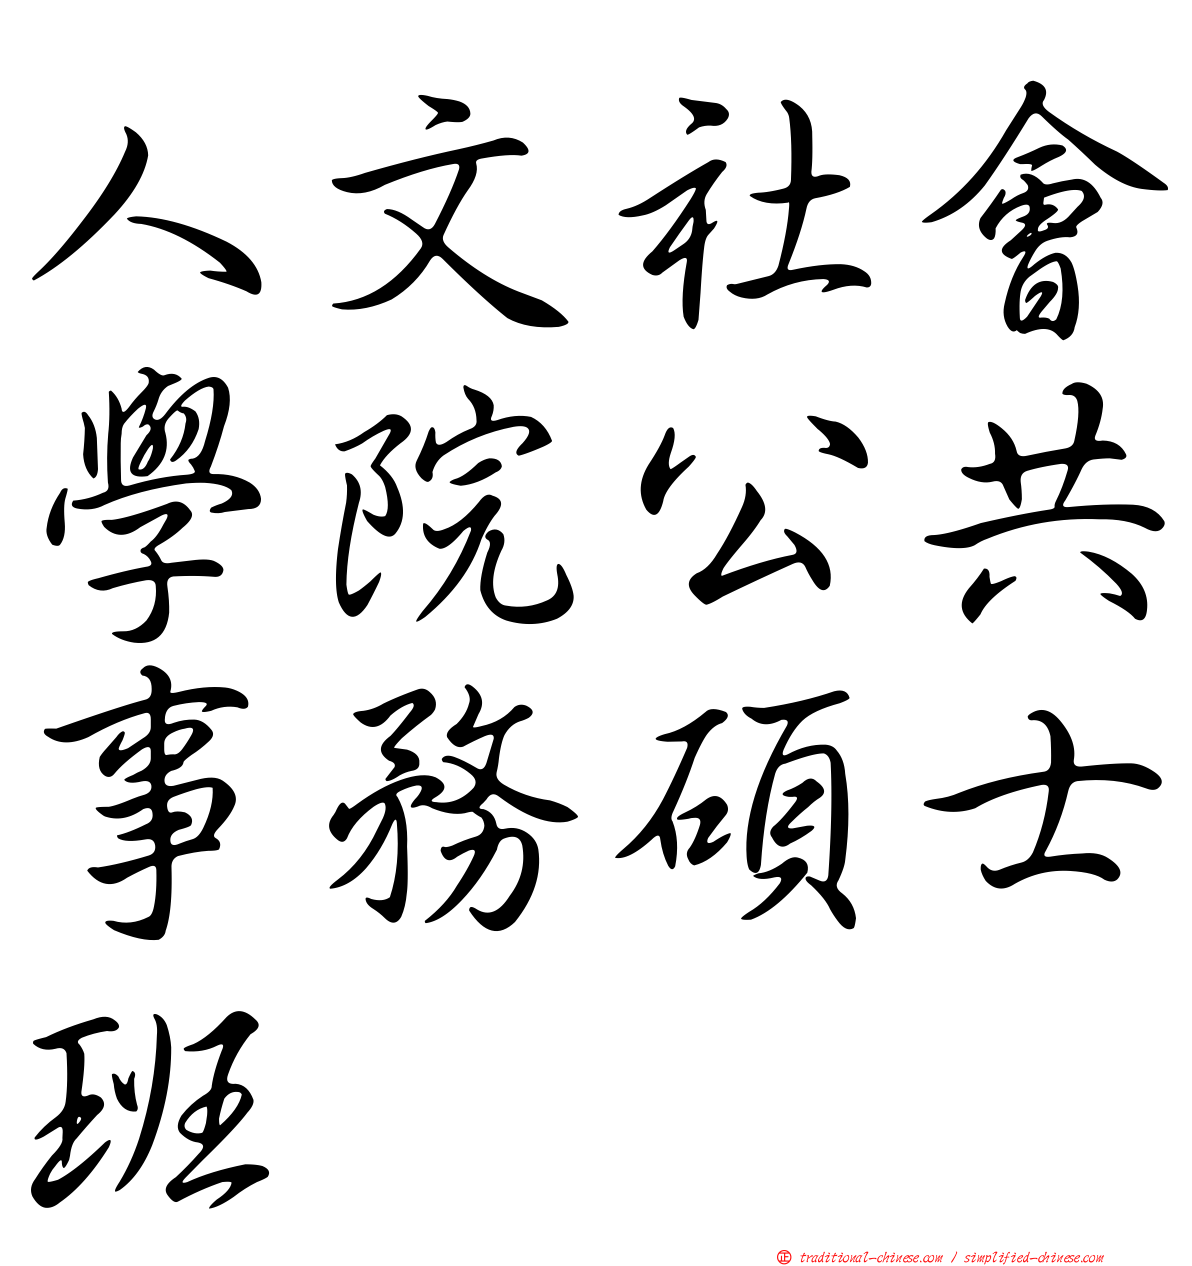 人文社會
學院公共
事務碩士
班
正 traditional-chinese.com / simplified-chinese.com